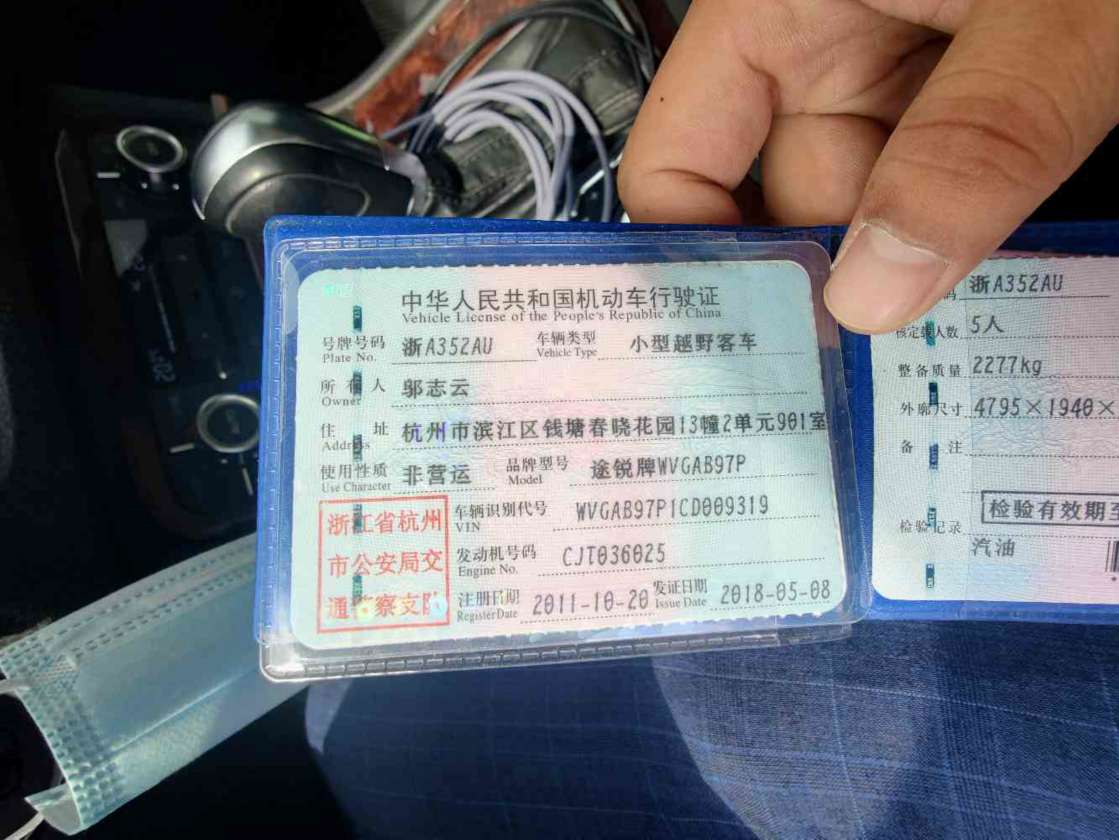 中华人民共和国机动车行驶证
Vehicle License of the People's Republic of China
号牌号码 浙A352AU 车辆类型 小型越野客车
Plate No. Vehicle Type
所有人 邬志云
Owner
住址 杭州市滨江区钱塘春晓花园13幢2单元901室
Address
使用性质 非营运 品牌型号 途锐牌WVGAB97P
Use Character Model
浙江省杭州
市公安局交
通警察支队
车辆识别代号 WVGAB97P1CD009319
VIN
发动机号码 CJT036025
Engine No.
注册日期 2011-10-20 发证日期 2018-05-08
Register Date Issue Date
码 浙A352AU
核定载人数 5人
整备质量 2277kg
外廓尺寸 4795×1940×
备注
检验有效期至
检验记录
汽油